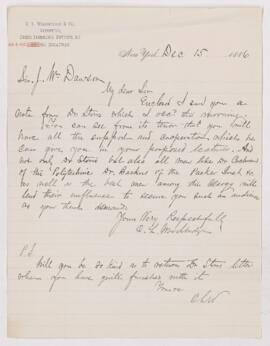 New York Dec 15 1886
Sir J. Wm Dawson
My dear Sir
Enclosed I send you a
note from Dr Storrs which I recd this morning.
You can see from its tenor that you will
have all the support and cooperation which he
can give you in your proposed lectures. And
not only Dr Storrs but also all men like Dr Cochran
of the Polytechnic Dr Backus of the Packer Inst &c
as well as the best men among the clergy will
lend their influence to secure you such an audience
as your theme demands.
Yours Very Respectfully
P.S.
Will you be so kind as to return Dr Storrs letter
when you have quite finished with it
Yours